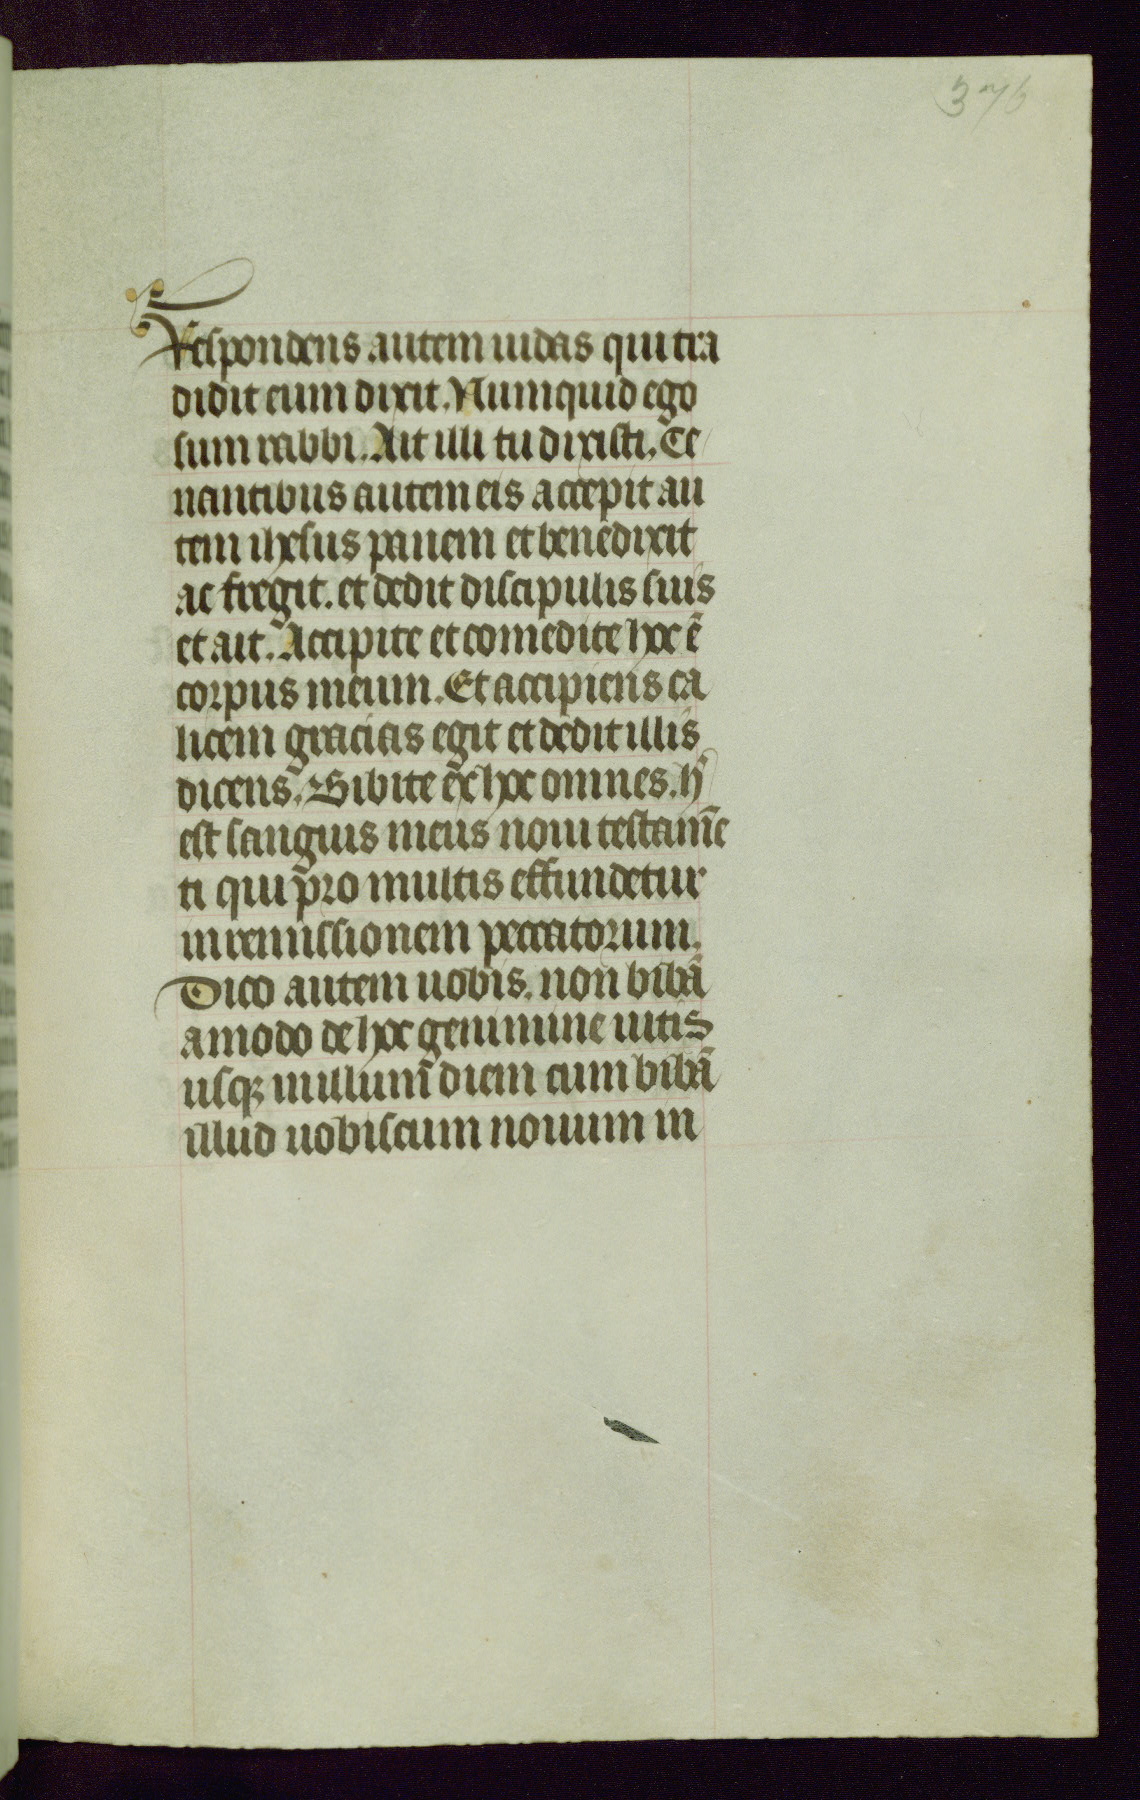 376
Respondens autem iudas qui tra
didit eum dixit. Numquid ego
sum rabbi. Ait illi tu dixisti. Ce
nantibus autem eis accepit au
tem ihesus panem et benedixit
ac fregit. et dedit discipulis suis
et ait. Accipite et comedite hoc ē
corpus meum. Et accipiens ca
licem gracias egit et dedit illis
dicens. Bibite ex hoc omnes. h̄
est sanguis meus noui testamē
ti qui pro multis effundetur
in remissionem peccatorum.
Dico autem uobis. non bibā
amodo de hoc genimine uitis
usqꝫ in illum diem cum bibā
illud uobiscum nouum in